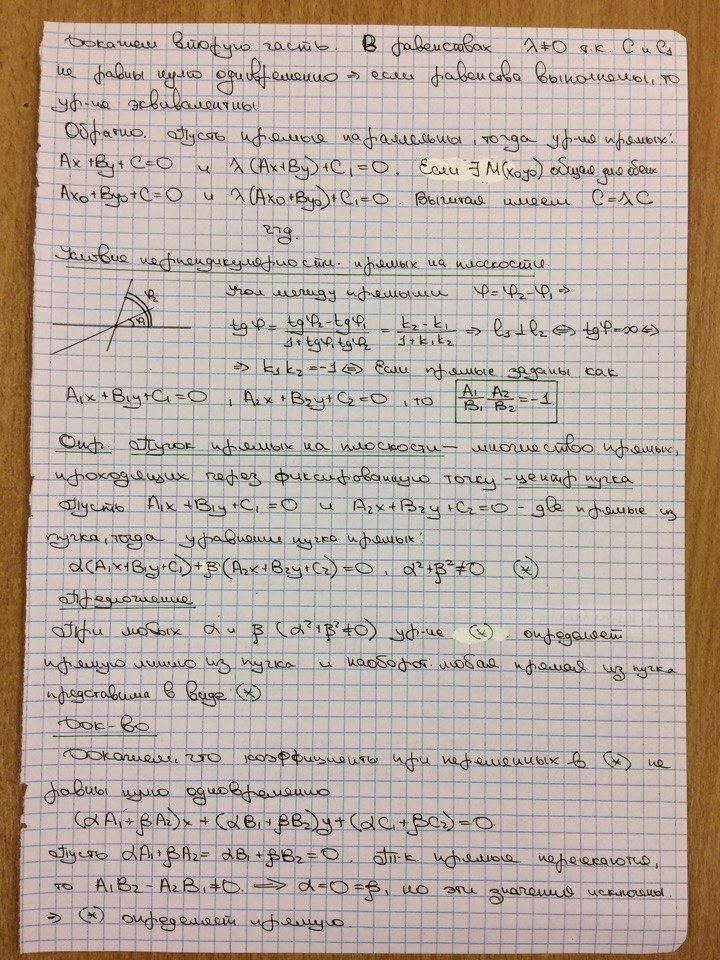 Докажем вторую часть. В равенствах λ≠0 т.к. C и C₁
не равны нулю одновременно ⇒ если равенства выполнены, то
ур-не эквивалентны.
Обратно. Пусть прямые параллельны, тогда ур-ия прямых:
Ax+By+C=0 и λ(Ax+By)+C₁=0. Если ∃ M(x₀y₀) общая для обеих
Ax₀+By₀+C=0 и λ(Ax₀+By₀)+C₁=0. Вычитая имеем C=λC
чтд.
Условие перпендикулярности прямых на плоскости.
φ₂
φ₁
Угол между прямыми φ=φ₂-φ₁ ⇒
tgφ = (tgφ₂-tgφ₁)/(1+tgφ₁tgφ₂) = (k₂-k₁)/(1+k₁k₂) ⇒ l₁⊥l₂ ⇔ tgφ=∞ ⇔
⇒ k₁k₂=-1 ⇔ Если прямые заданы как
A₁x+B₁y+C₁=0, A₂x+B₂y+C₂=0, то A₁/B₁ A₂/B₂ = -1
Опр. Пучок прямых на плоскости — множество прямых,
проходящих через фиксированную точку - центр пучка
Пусть A₁x+B₁y+C₁=0 и A₂x+B₂y+C₂=0 - две прямые из
пучка, тогда уравнение пучка прямых:
α(A₁x+B₁y+C₁)+β(A₂x+B₂y+C₂)=0, α²+β²≠0 (*)
Предложение
При любых α и β (α²+β²≠0) ур-ие (*) определяет
прямую линию из пучка и наоборот: любая прямая из пучка
представима в виде (*)
Док-во
Докажем, что коэффициенты при переменных в (*) не
равны нулю одновременно
(αA₁+βA₂)x+(αB₁+βB₂)y+(αC₁+βC₂)=0.
Пусть αA₁+βA₂=αB₁+βB₂=0. Т.к прямые пересекаются,
то A₁B₂-A₂B₁≠0. ⟹ α=0=β, но эти значения исключены.
⇒ (*) определяет прямую.